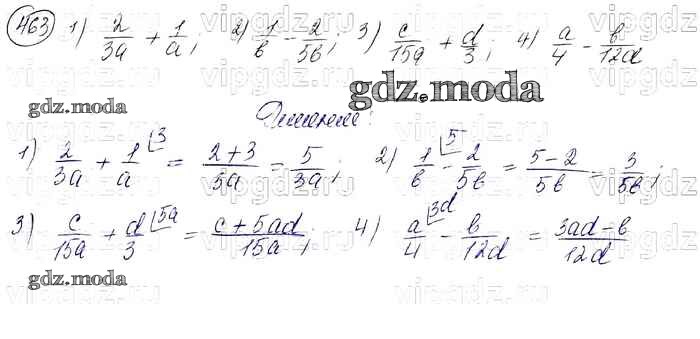 463 1) 2/3a + 1/a; 2) 1/b - 2/5b; 3) c/15a + d/3; 4) a/4 - b/12d
gdz.moda
gdz.moda
1) 2/3a + 1/a ⌊3 = 2+3/5a = 5/3a; 2) 1/b ⌊5 - 2/5b = 5-2/5b = 3/5b;
3) c/15a + d/3 ⌊5a = c+5ad/15a; 4) a/4 ⌊3d - b/12d = 3ad-b/12d
gdz.moda